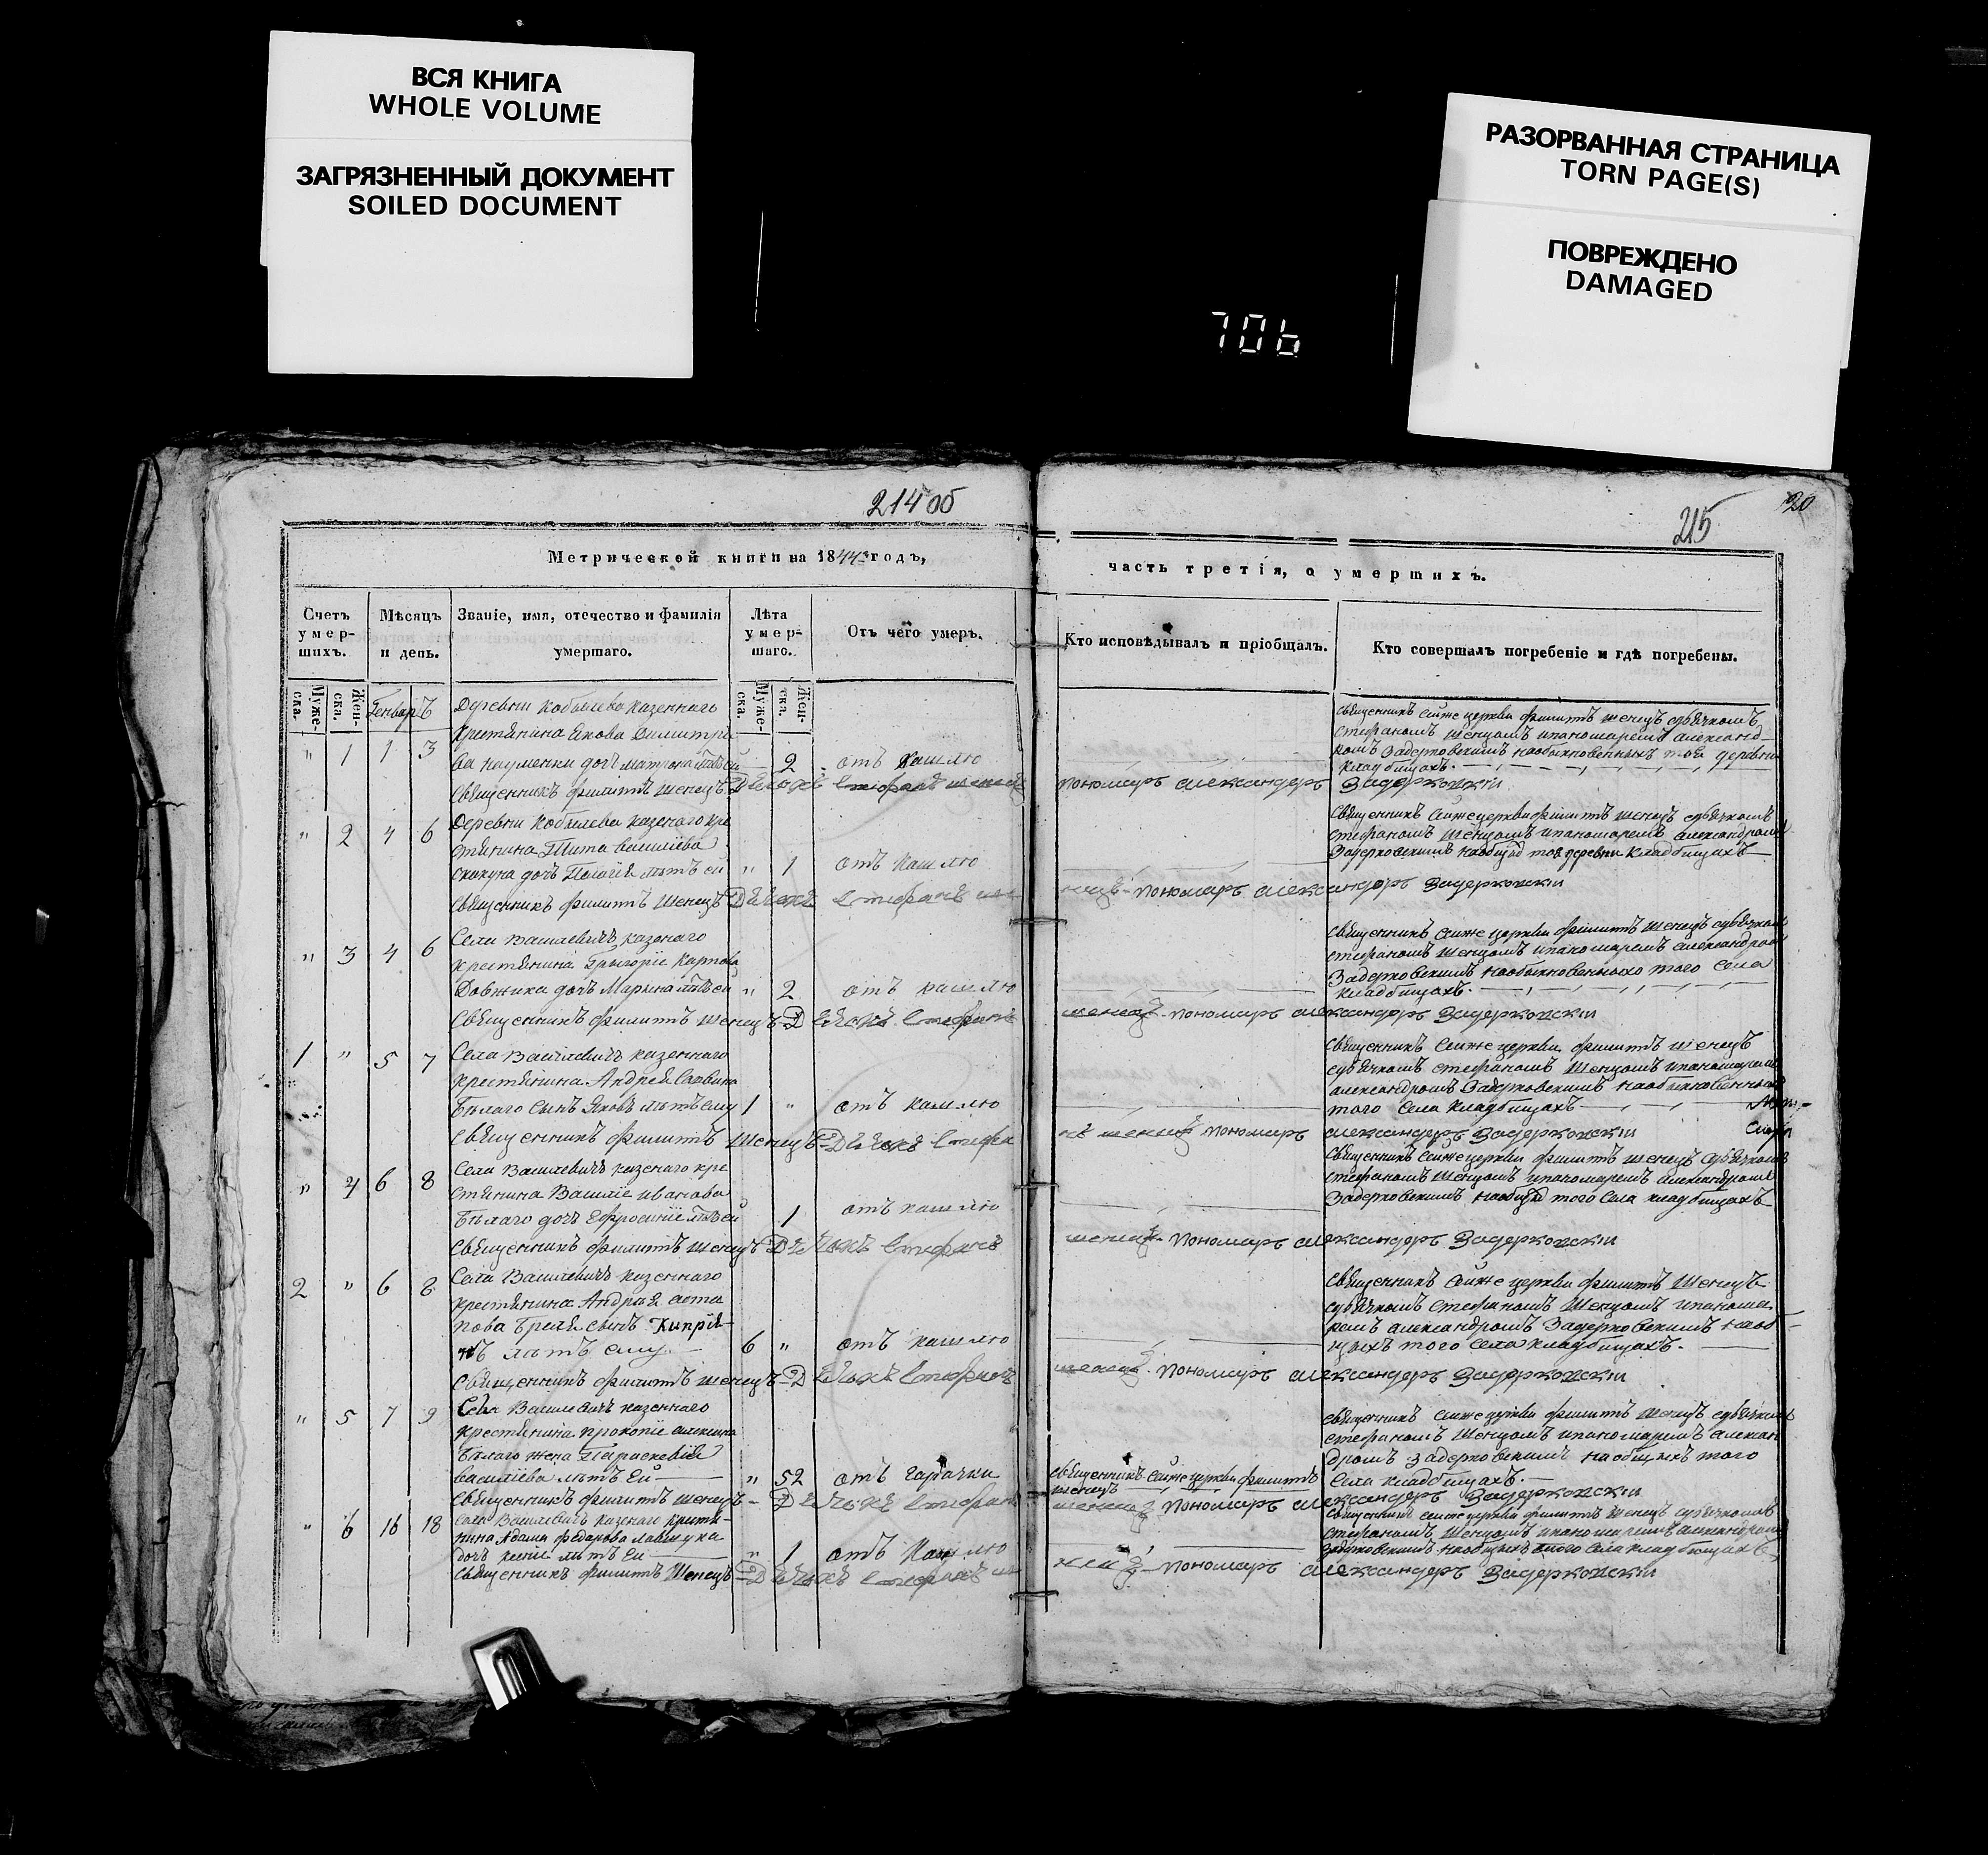 ВСЯ КНИГА
WHOLE VOLUME
ЗАГРЯЗНЕННЫЙ ДОКУМЕНТ
SOILED DOCUMENT
РАЗОРВАННАЯ СТРАНИЦА
TORN PAGE(S)
ПОВРЕЖДЕНО
DAMAGED
706
214 об
215
20
Метрической книги на 1844 годъ,
часть третія, о умершихъ.
Счетъ умер-
шихъ.
Мѣсяцъ
и день.
Званіе, имя, отечество и фамилія
умершаго.
Лѣта
умер-
шаго.
Отъ чего умеръ.
Кто исповѣдывалъ и пріобщалъ.
Кто совершалъ погребеніе и гдѣ погребены.
Муже-
ска.
Жен-
ска.
Генварь
Муже-
ска.
Жен-
ска.
Деревни Кобылева казеннаго
крестянина Якова Димитрі
ва Науменки дочъ Матрона лѣтъ ей
" 1 1 3
2 отъ кашлю
Священникъ Филиппъ Шенецъ Дьячокъ Стефанъ Шенецъ
пономаръ александеръ Задерковскіи
священникъ сеиже церкви филиппъ шенецъ сдьячкомъ
стефаномъ шенцомъ ипаномаремъ александ-
ромъ Задерковскимъ наобыкновенныхъ тоя деревни
кладбищахъ.
" 2 4 6
Деревни Кобылева казенаго кре
стянина Тита василіева
скакуна дочъ Пелагія лѣтъ ей " 1 отъ кашлю
Священникъ филиппъ Шенецъ Дьячокъ Стефанъ Ше
нецъ пономаръ александеръ Задерковскіи
Священникъ сеиже церкви филиппъ шенецъ сдьячкомъ
стефаномъ Шенцомъ ипаномаремъ александромъ
Задерковскимъ наобщ тоя деревни кладбищахъ
" 3 4 6
Села Василевичъ казенаго
крестянина Григорія Карпова
Довника дочъ Марына лѣтъ ей " 2 отъ кашлю
Священникъ филиппъ шенецъ Дьячокъ Стефанъ
шенецъ пономаръ александеръ Задерковскіи
священникъ сеиже церкви филиппъ шенецъ сдьячкомъ
стефаномъ шенцомъ ипаномаремъ александромъ
Задерковскимъ наобыкновенныхъ того села
кладбищахъ.
1 " 5 7
Села Василевичъ казеннаго
крестянина Андрея Саввина
Бѣлаго сынъ Яковъ лѣтъ ему 1 " отъ кашлю
Священникъ филиппъ Шенецъ Дьячокъ Стефа
нъ шенецъ пономаръ александеръ Задерковскіи
священникъ сеиже церкви филиппъ шенецъ
сдьячкомъ стефаномъ Шенцомъ ипаномаремъ
александромъ Задерковскимъ наобыкновенныхъ
того села кладбищахъ
" 4 6 8
Села Василевичъ казенаго кре
стянина Василіе иванова
Бѣлаго дочъ Ефросиніе лѣтъ ей 1 отъ кашлю
Священникъ филиппъ шенецъ Дьячокъ Стефанъ
шенецъ пономаръ александеръ Задерковскіи
Священникъ сеиже церкви филиппъ шенецъ сдьячкомъ
стефаномъ Шенцомъ ипаномаремъ александромъ
Задерковскимъ наобщ того села кладбищахъ
2 " 6 8
Села Василевичъ казеннаго
крестянина Андрея аста
пова Бреля сынъ Кипріа-
нъ лѣтъ ему 6 " отъ кашлю
Священникъ филиппъ шенецъ Дьячокъ Стефанъ
шенецъ пономаръ александеръ Задерковскіи
священникъ сеиже церкви филиппъ Шенецъ
сдьячкомъ стефаномъ Шенцомъ ипанома
ремъ александромъ Задерковскимъ наоб-
щыхъ того села кладбищахъ.
" 5 7 9
Села Василевичъ казеннаго
крестянина прокопіе
Бѣлаго жена Параскевія
василіева лѣтъ ей " 52 отъ гарачки
священникъ сеиже церкви филиппъ
шенецъ
Священникъ филиппъ шенецъ Дьячокъ Стефанъ
шенецъ пономаръ александеръ Задерковскіи
священникъ сеиже церкви филиппъ шенецъ сдьячкомъ
стефаномъ Шенцомъ ипаномаремъ алексан
дромъ задерковскимъ наобщыхъ того
села кладбищахъ.
" 6 16 18
Села Василевичъ казенаго крестя-
нина Адама федарова
дочъ ксеніе лѣтъ ей " 1 отъ кашлю
священникъ филиппъ Шенецъ Дьячокъ Стефанъ ше
нецъ пономаръ александеръ Задерковскіи
Священникъ сеиже церкви филиппъ шенецъ сдьячкомъ
стефаномъ Шенцомъ ипаномаремъ александромъ
задерковскимъ наобщыхъ того села кладбищахъ